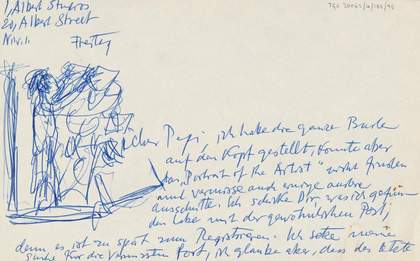 1, Albert Studios
20, Albert Street
N.W.1.
Freitag
TGA 20062/4/185/95
Lieber Pepi, ich habe die ganze Bude
auf den Kopf gestellt, konnte aber
das "Portrait of the Artist" nicht finden
und vermisse auch einige andere
Ausschnitte. Ich schicke Dir, was ich gefun-
den habe mit der gewöhnlichen Post,
denn es ist zu spät zum Registrieren. Ich setze meine
Suche für die vermissten fort, ich glaube aber, dass der letzte